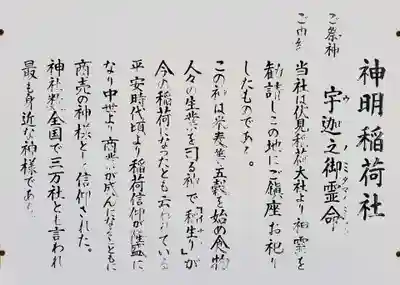 神明稲荷社
ご祭神 宇迦之御霊命
ウ ノミタマノミコト
ご由緒
当社は伏見稲荷大社より御霊を
勧請しこの地にご鎮座お祀り
したものである。
この神は米麦等五穀を始め食物
人々の生業を司る神で「稲生り」が
今の稲荷になったとも云われている
平安時代頃より稲荷信仰が旺盛に
なり中世より商業が盛んになるとともに
商売の神様として信仰された。
神社数全国で三万社とも言われ
最も身近な神様である。